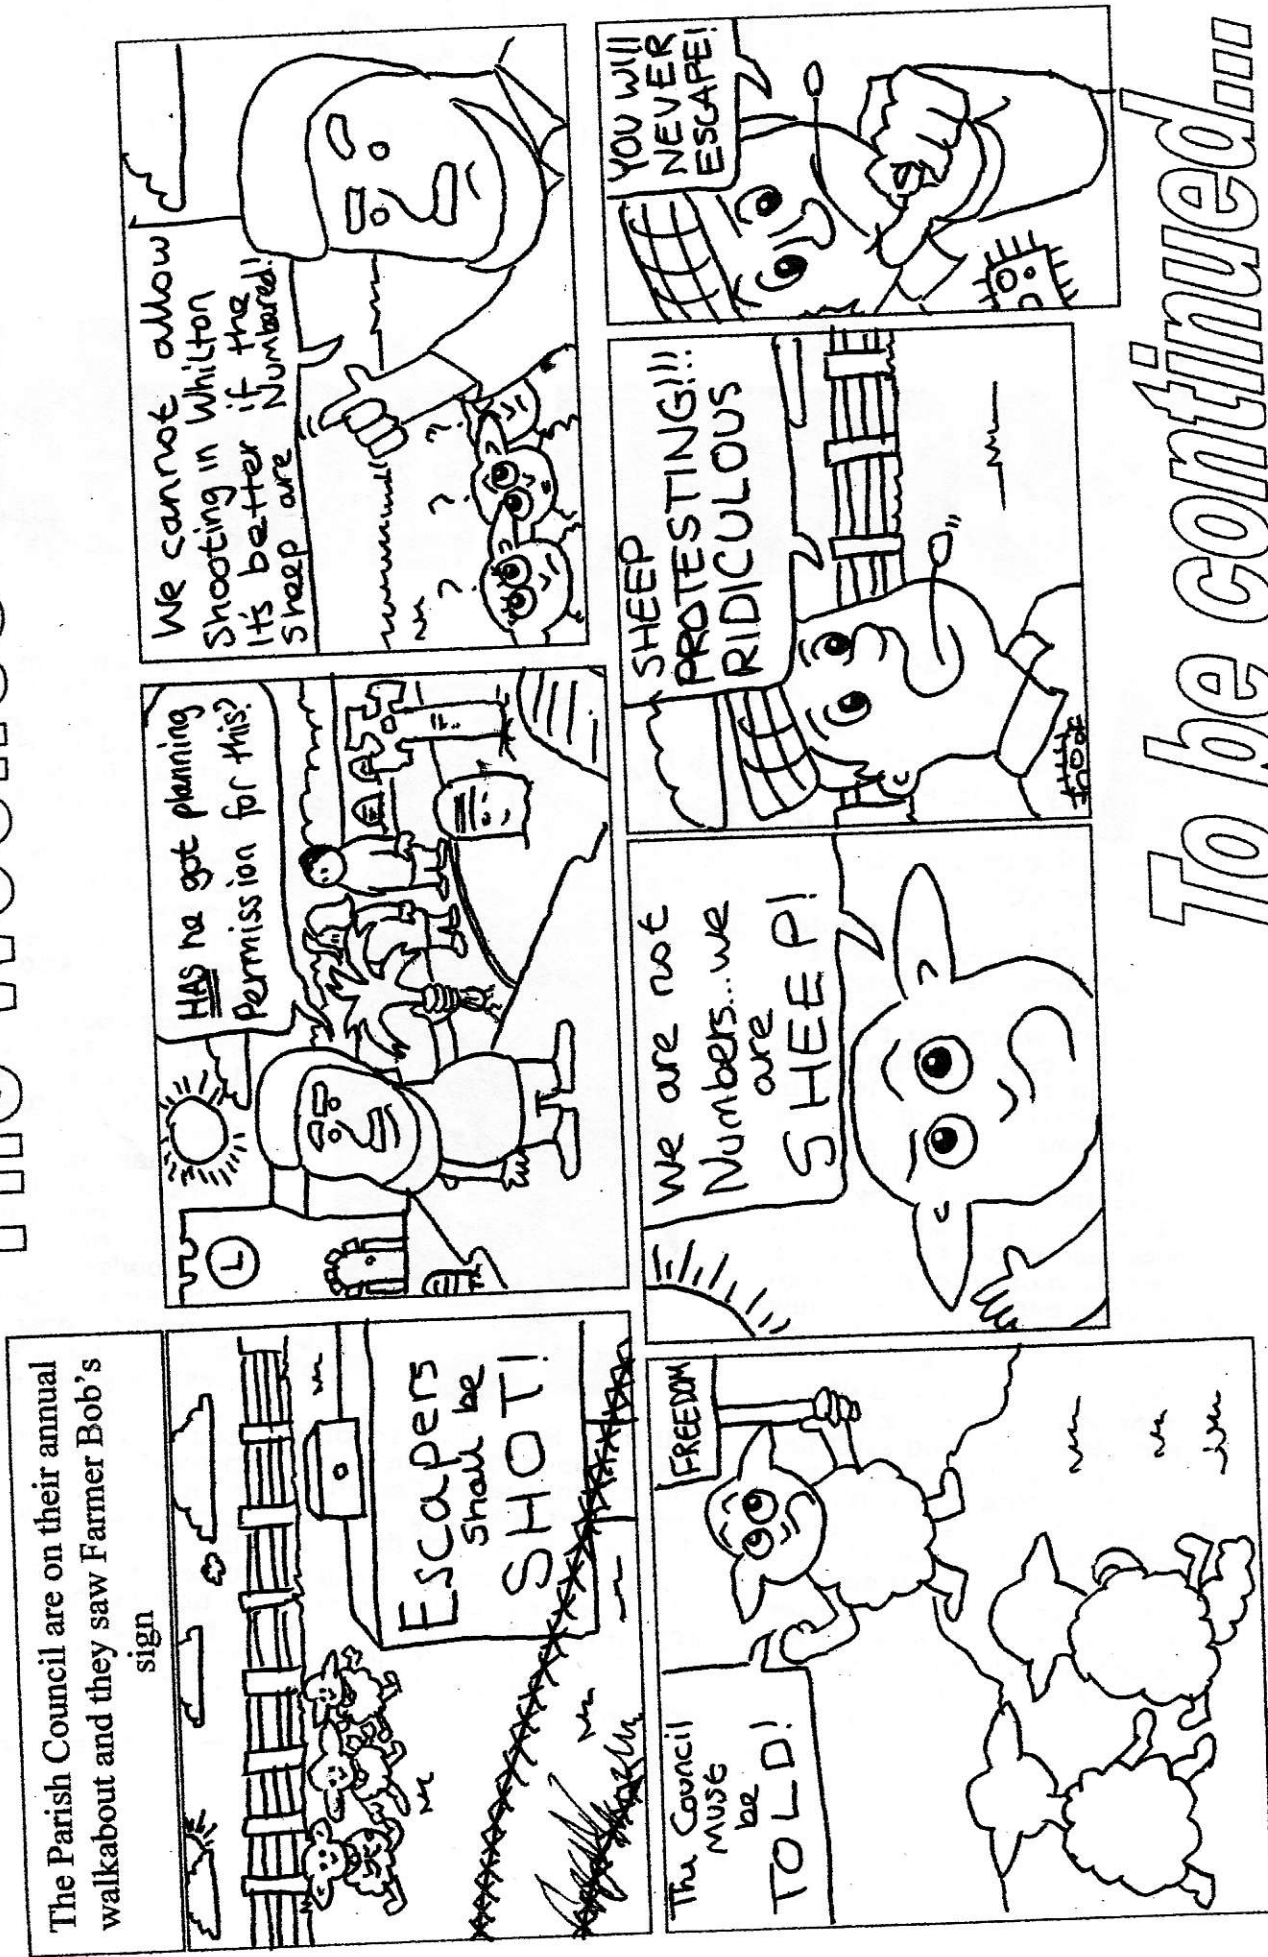 The Parish Council are on their annual
walkabout and they saw Farmer Bob's
sign
Escapers
Shall be
SHOT!
HAS he got planning
Permission for this?
We cannot allow
Shooting in Whilton
It's better if the
sheep are Numbered!
The Council
Must
be
TOLD!
FREEDOM
We are not
Numbers...we
are
SHEEP!
SHEEP
PROTESTING!!!
RIDICULOUS
YOU WIll
NEVER
ESCAPE!
To be continued...